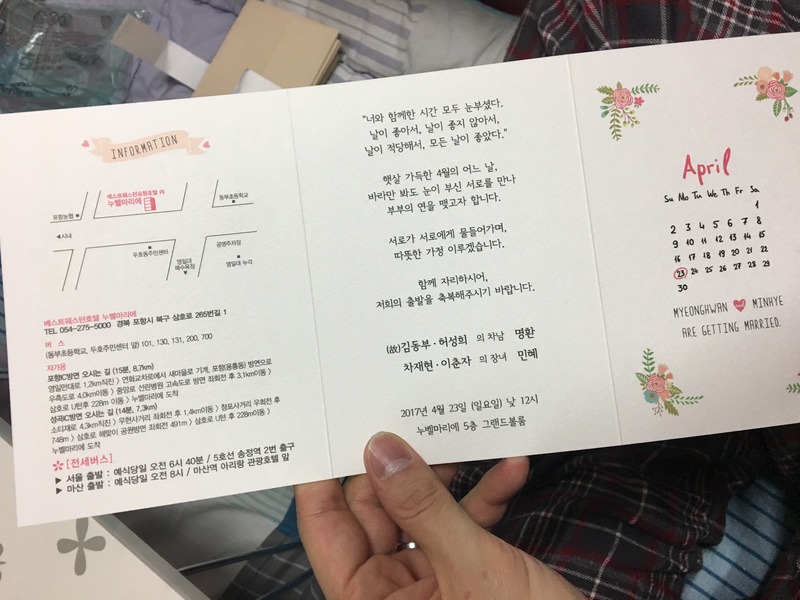 INFORMATION
베스트웨스턴포항호텔 内
누벨마리에
동부초등학교
포항농협
◀시내
두호동주민센터
영일대
해수욕장
공영주차장
영일대 누각
베스트웨스턴호텔 누벨마리에
TEL 054-275-5000 경북 포항시 북구 삼호로 265번길 1
버 스
(동부초등학교, 두호주민센터 앞) 101, 130, 131, 200, 700
자가용
포항IC방면 오시는 길 (15분, 8.7km)
영일만대로 1.2km직진 〉 연화교차로에서 새마을로 기계, 포항(용흥동) 방면으로
우측도로 4.0km이동 〉 중앙로 선린병원 고속도로 방면 좌회전 후 3.1km이동 〉
삼호로 U턴후 228m 이동 〉 누벨마리에 도착
성곡IC방면 오시는 길 (14분, 7.3km)
소티재로 4.3km직진 〉 우현사거리 좌회전 후 1.4km이동 〉 창포사거리 우회전 후
748m 〉 삼호로 해맞이 공원방면 좌회전 491m 〉 삼호로 U턴 후 228m이동 〉
누벨마리에 도착
[전세버스]
▶ 서울 출발 : 예식당일 오전 6시 40분 / 5호선 송정역 2번 출구
▶ 마산 출발 : 예식당일 오전 8시 / 마산역 아리랑 관광호텔 앞
"너와 함께한 시간 모두 눈부셨다.
날이 좋아서, 날이 좋지 않아서,
날이 적당해서, 모든 날이 좋았다."
햇살 가득한 4월의 어느 날,
바라만 봐도 눈이 부신 서로를 만나
부부의 연을 맺고자 합니다.
서로가 서로에게 물들어가며,
따뜻한 가정 이루겠습니다.
함께 자리하시어,
저희의 출발을 축복해주시기 바랍니다.
(故)김동부·허성희 의 차남 명환
차재현·이춘자 의 장녀 민혜
2017년 4월 23일 (일요일) 낮 12시
누벨마리에 5층 그랜드볼룸
April
Su Mo Tu We Th Fr Sa
1
2 3 4 5 6 7 8
9 10 11 12 13 14 15
16 17 18 19 20 21 22
23 24 25 26 27 28 29
30
MYEONGHWAN and MINHYE
ARE GETTING MARRIED.